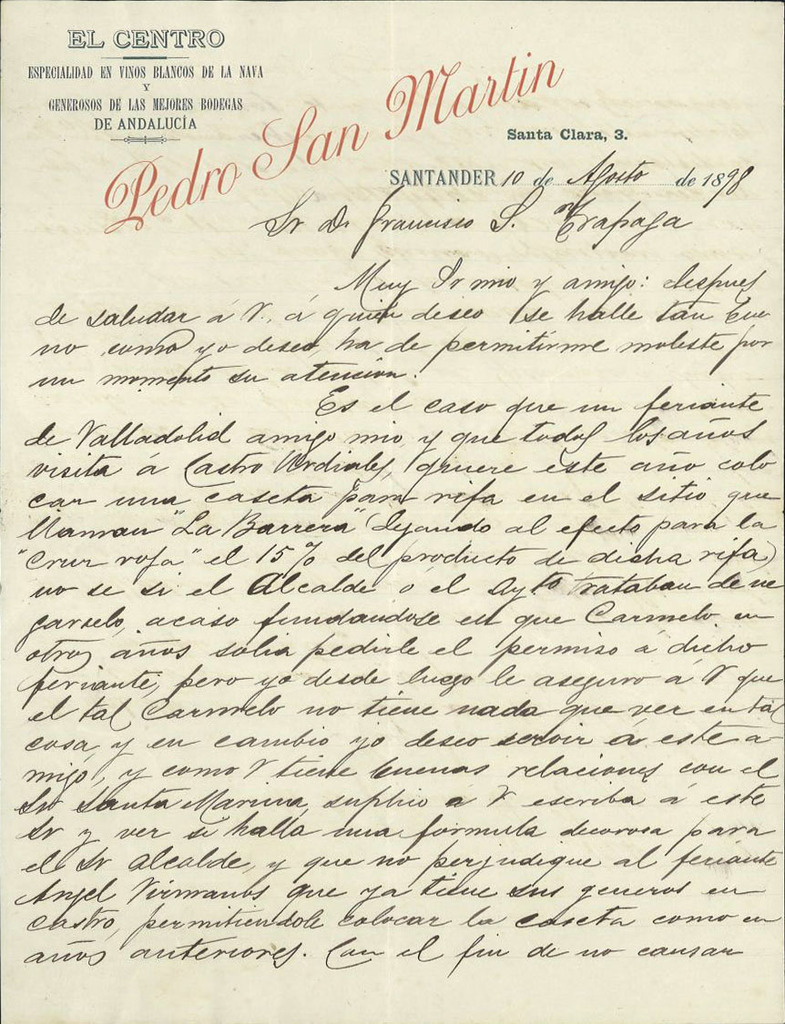 EL CENTRO
ESPECIALIDAD EN VINOS BLANCOS DE LA NAVA
Y
GENEROSOS DE LAS MEJORES BODEGAS
DE ANDALUCÍA
Pedro San Martin
Santa Clara, 3.
SANTANDER 10 de Agosto de 1898
Sr D. Francisco S. Trapaga
Muy Sr mio y amigo: despues
de saludar á V., á quien deseo se halle tan bue
no como yo deseo, ha de permitirme moleste por
un momento su atencion.
Es el caso que un feriante
de Valladolid amigo mio y que todos los años
visita á Castro Urdiales, quiere este año colo
car una caseta para rifa en el sitio que
llaman "La Barrera" (dejando al efecto para la
"Cruz roja" el 15% del producto de dicha rifa)
no se si el Alcalde o el Aytº trataban de ne
garselo, acaso fundandose en que Carmelo en
otros años solia pedirle el permiso á dicho
feriante, pero yo desde luego le aseguro á V que
el tal Carmelo no tiene nada que ver en tal
cosa, y en cambio yo deseo servir á este a-
migo, y como V tiene buenas relaciones con el
Sr Santa Marina, suplico á V escriba á este
Sr y ver si halla una formula decorosa para
el Sr Alcalde, y que no perjudique al feriante
Angel que ya tiene sus generos en
Castro, permitiendole colocar la caseta como en
años anteriores. Con el fin de no causar